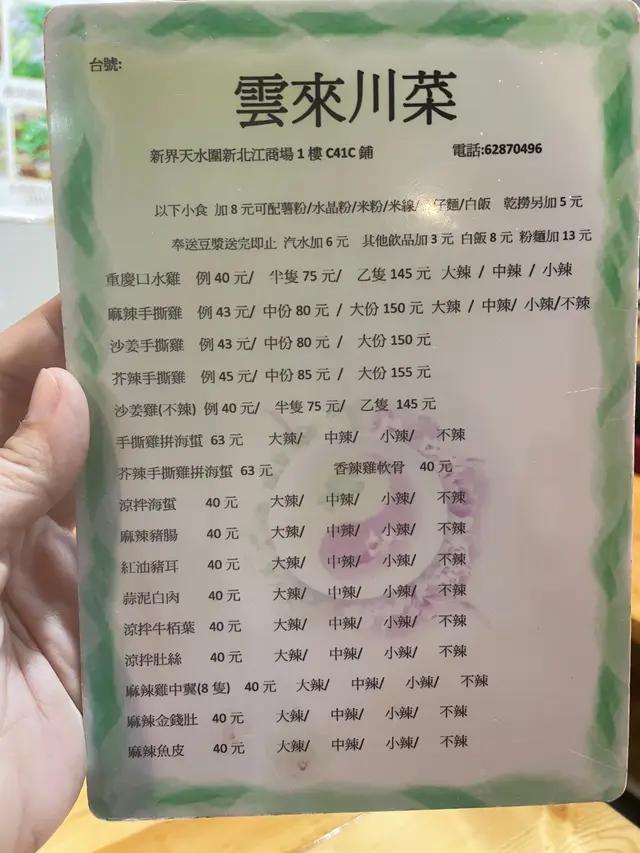 台號:
雲來川菜
新界天水圍新北江商場 1 樓 C41C 鋪 電話:62870496
以下小食 加 8 元可配薯粉/水晶粉/米粉/米線/ 仔麵/白飯 乾撈另加 5 元
奉送豆漿送完即止 汽水加 6 元 其他飲品加 3 元 白飯 8 元 粉麵加 13 元
重慶口水雞 例 40 元/ 半隻 75 元/ 乙隻 145 元 大辣 / 中辣 / 小辣
麻辣手撕雞 例 43 元/ 中份 80 元 / 大份 150 元 大辣 / 中辣/ 小辣/不辣
沙姜手撕雞 例 43 元/ 中份 80 元 / 大份 150 元
芥辣手撕雞 例 45 元/ 中份 85 元 / 大份 155 元
沙姜雞(不辣) 例 40 元/ 半隻 75 元/ 乙隻 145 元
手撕雞拼海蜇 63 元 大辣/ 中辣/ 小辣/ 不辣
芥辣手撕雞拼海蜇 63 元 香辣雞軟骨 40 元
涼拌海蜇 40 元 大辣/ 中辣/ 小辣/ 不辣
麻辣豬腸 40 元 大辣/ 中辣/ 小辣/ 不辣
紅油豬耳 40 元 大辣/ 中辣/ 小辣/ 不辣
蒜泥白肉 40 元 大辣/ 中辣/ 小辣/ 不辣
涼拌牛栢葉 40 元 大辣/ 中辣/ 小辣/ 不辣
涼拌肚絲 40 元 大辣/ 中辣/ 小辣/ 不辣
麻辣雞中翼(8 隻) 40 元 大辣/ 中辣/ 小辣/ 不辣
麻辣金錢肚 40 元 大辣/ 中辣/ 小辣/ 不辣
麻辣魚皮 40 元 大辣/ 中辣/ 小辣/ 不辣